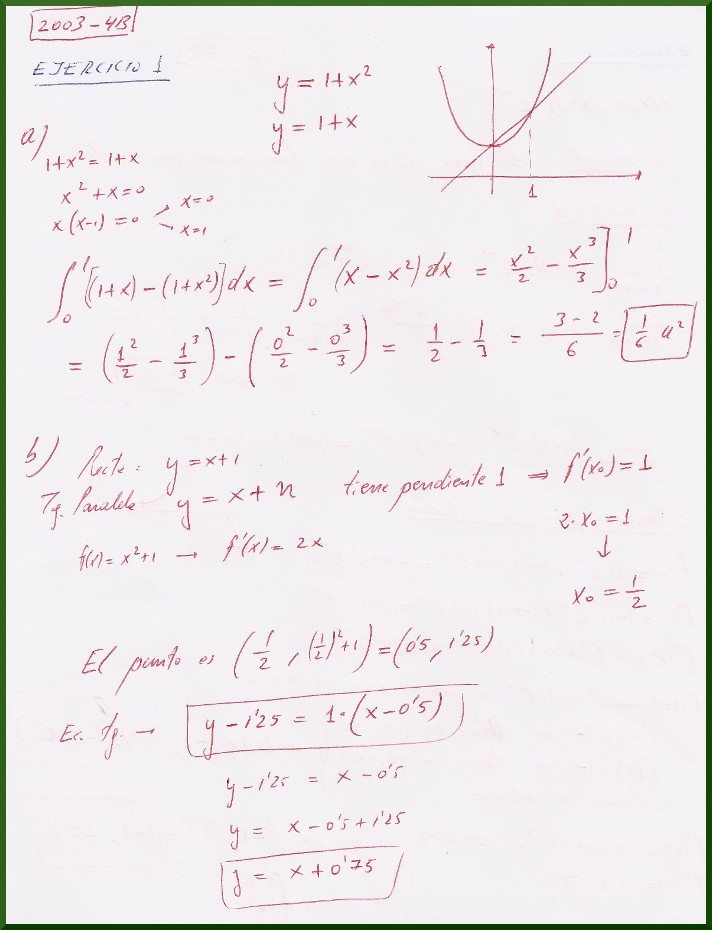 2003-4B
EJERCICIO 1
y = 1+x²
y = 1+x
1
a)
1+x² = 1+x
x² + x = 0
x(x-1) = 0 x=0
x=1
∫₀¹ [(1+x) - (1+x²)] dx = ∫₀¹ (x - x²) dx = x²/2 - x³/3 ]₀¹
= (1²/2 - 1³/3) - (0²/2 - 0³/3) = 1/2 - 1/3 = (3-2)/6 = 1/6 u²
b) Recta: y = x+1
Tg. Paralela y = x + n tiene pendiente 1 ⇒ f'(x₀) = 1
2·x₀ = 1
↓
f(x) = x²+1 → f'(x) = 2x
x₀ = 1/2
El punto es (1/2, (1/2)²+1) = (0'5, 1'25)
Ec. tg. → y - 1'25 = 1·(x - 0'5)
y - 1'25 = x - 0'5
y = x - 0'5 + 1'25
y = x + 0'75